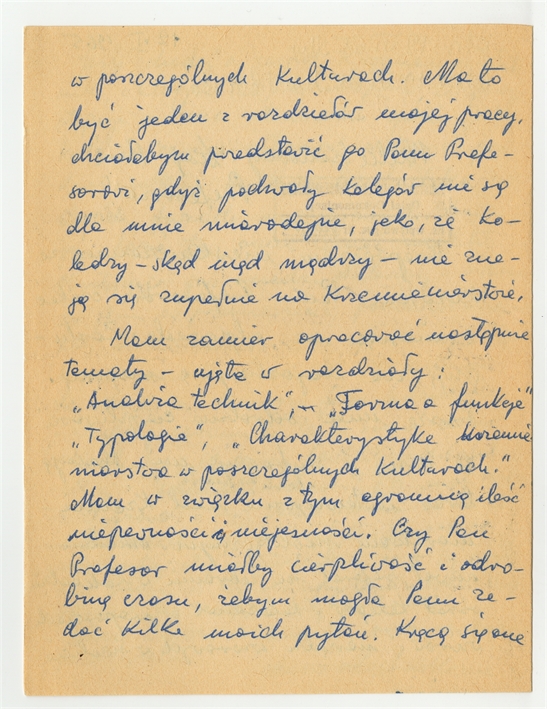 w poszczególnych Kulturach. Ma to
być jeden z rozdziałów mojej pracy,
chciałabym przedstawić go Panu Profe-
sorowi, gdyż pochwały Kolegów nie są
dla mnie miarodajne, jako, że Ko-
ledzy – skąd inąd mądrzy – nie zna-
ją się zupełnie na Krzemieniarstwie.
Mam zamiar opracować następnie
tematy – ujęte w rozdziały:
„Analiza technik", – „Forma a funkcje"
„Typologia", „Charakterystyka Krzemie
niarstwa w poszczególnych Kulturach."
Mam w związku z tym ogromną ilość
niepewności i niejasności. Czy Pan
Profesor miałby cierpliwość i odro-
binę czasu, żebym mogła Panu za-
dać Kilka moich pytań. Kręcą się one